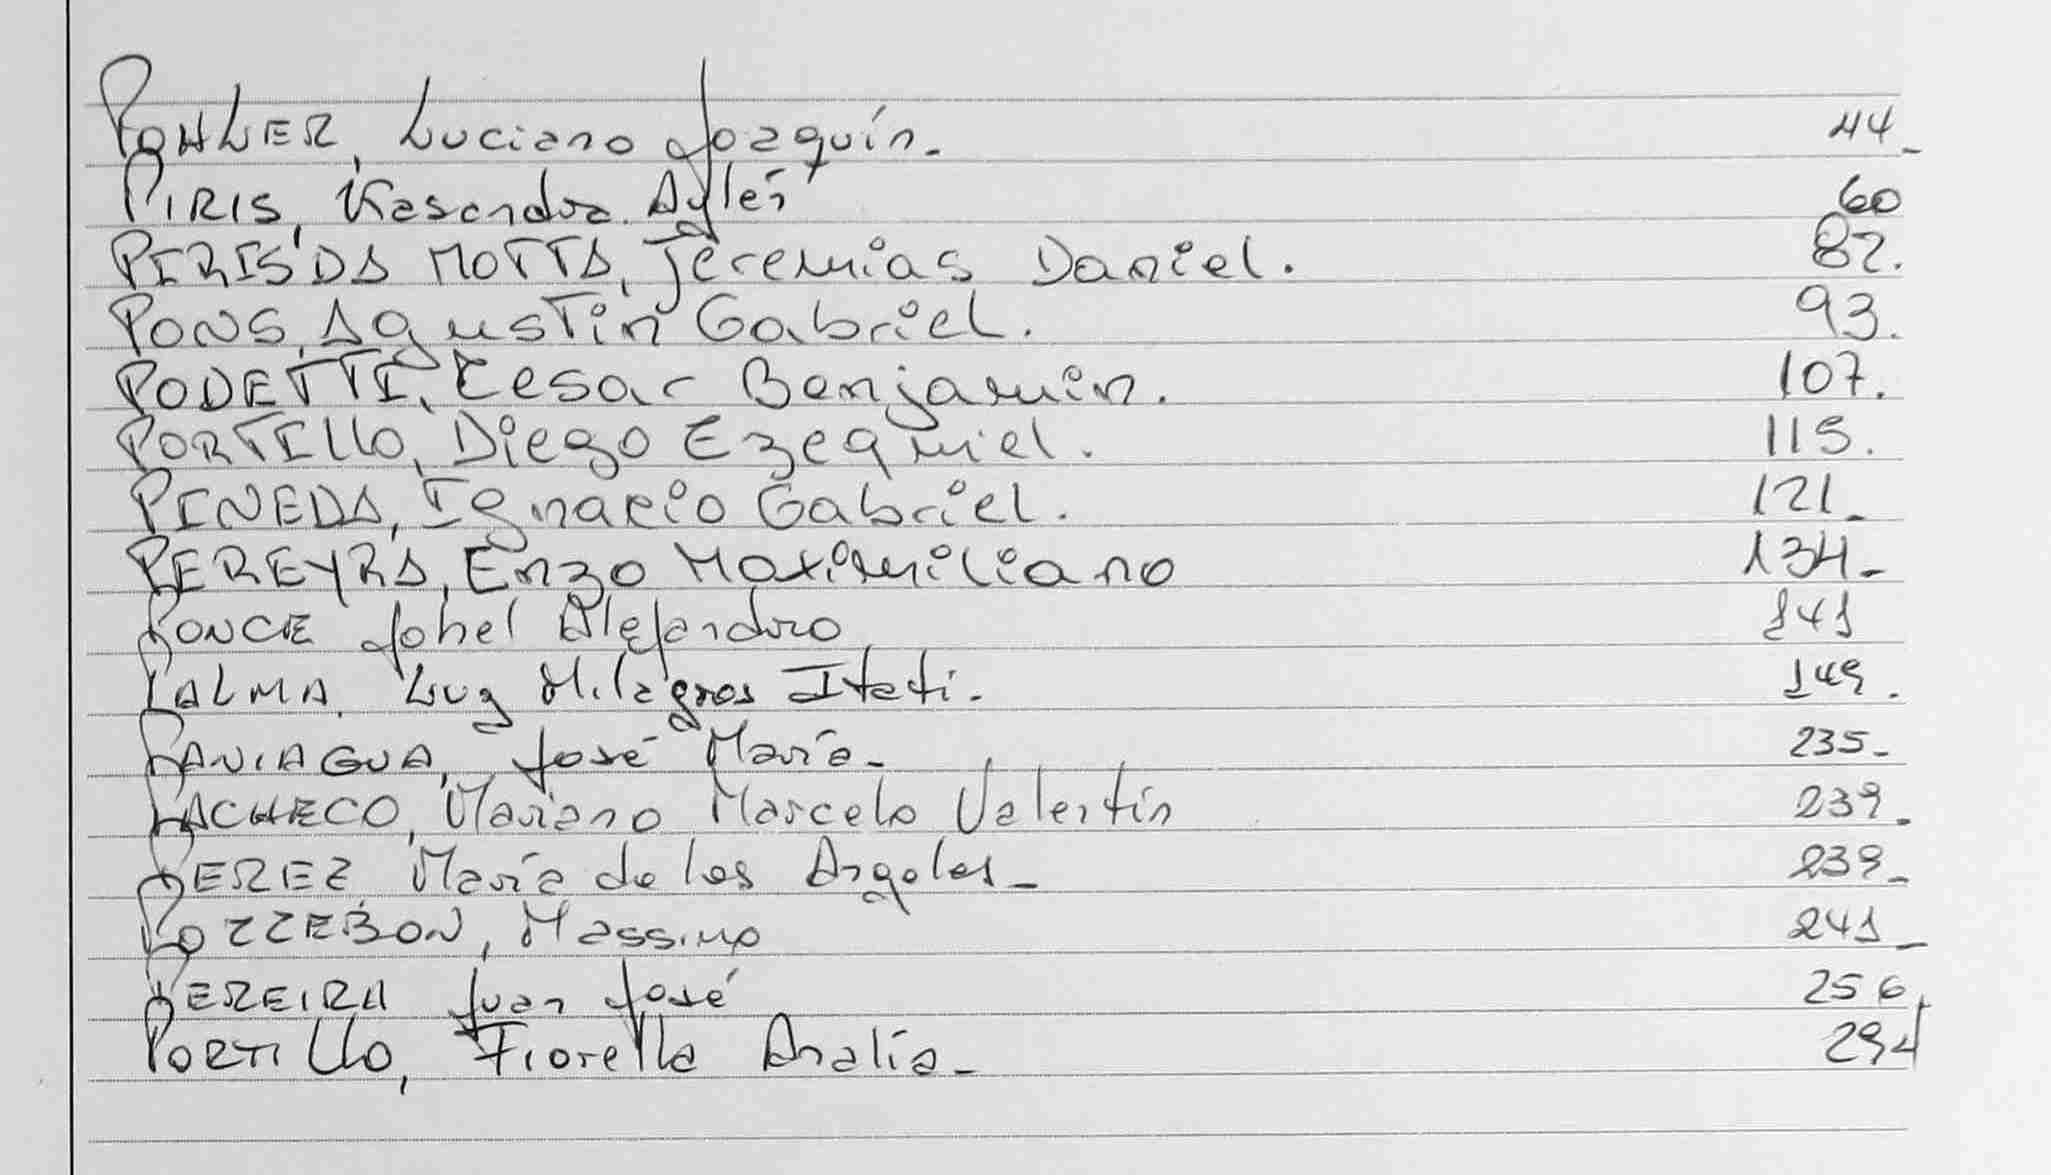 POHLER, Luciano Joaquín. 44_
PIRIS, Kasandra Aylén 60
PIRIS DA MOTTA, Jeremias Daniel. 82.
PONS, Agustin Gabriel. 93.
PODETTI, Cesar Benjamin. 107.
PORTILLO, Diego Ezequiel. 115.
PINEDA, Ignacio Gabriel. 121_
PEREYRA, Enzo Maximiliano 134_
PONCE Johel Alejandro 141
PALMA, Luz Milagros Itatí. 149.
PANIAGUA, José María_ 235_
PACHECO, Mariano Marcelo Valentín 239_
PEREZ María de los Angeles_ 239_
POZZEBON, Massimo 241_
PEREIRA Juan José 256
PORTILLO, Fiorella Analía_ 294